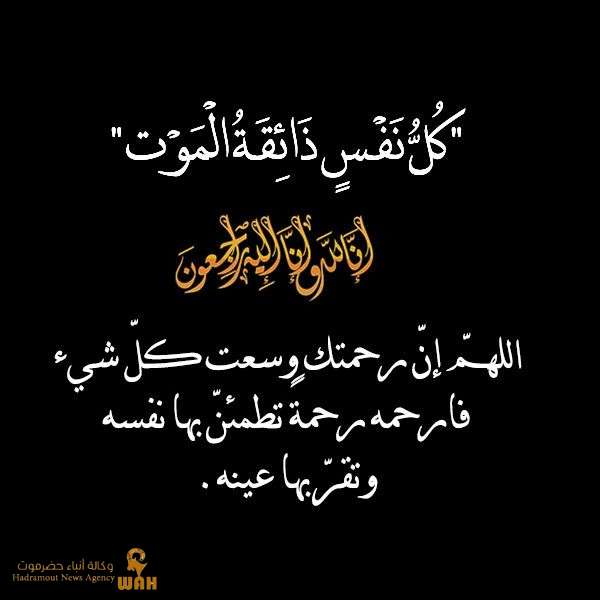 "كُلُّ نَفْسٍ ذَائِقَةُ الْمَوْت"
إنَّا لله وإنَّا إليه راجعون
اللهمّ إنّ رحمتك وسعت كلّ شيء
فارحمه رحمة تطمئنّ بها نفسه
وتقرّ بها عينه .
وكالة أنباء حضرموت
Hadramout News Agency
WAH